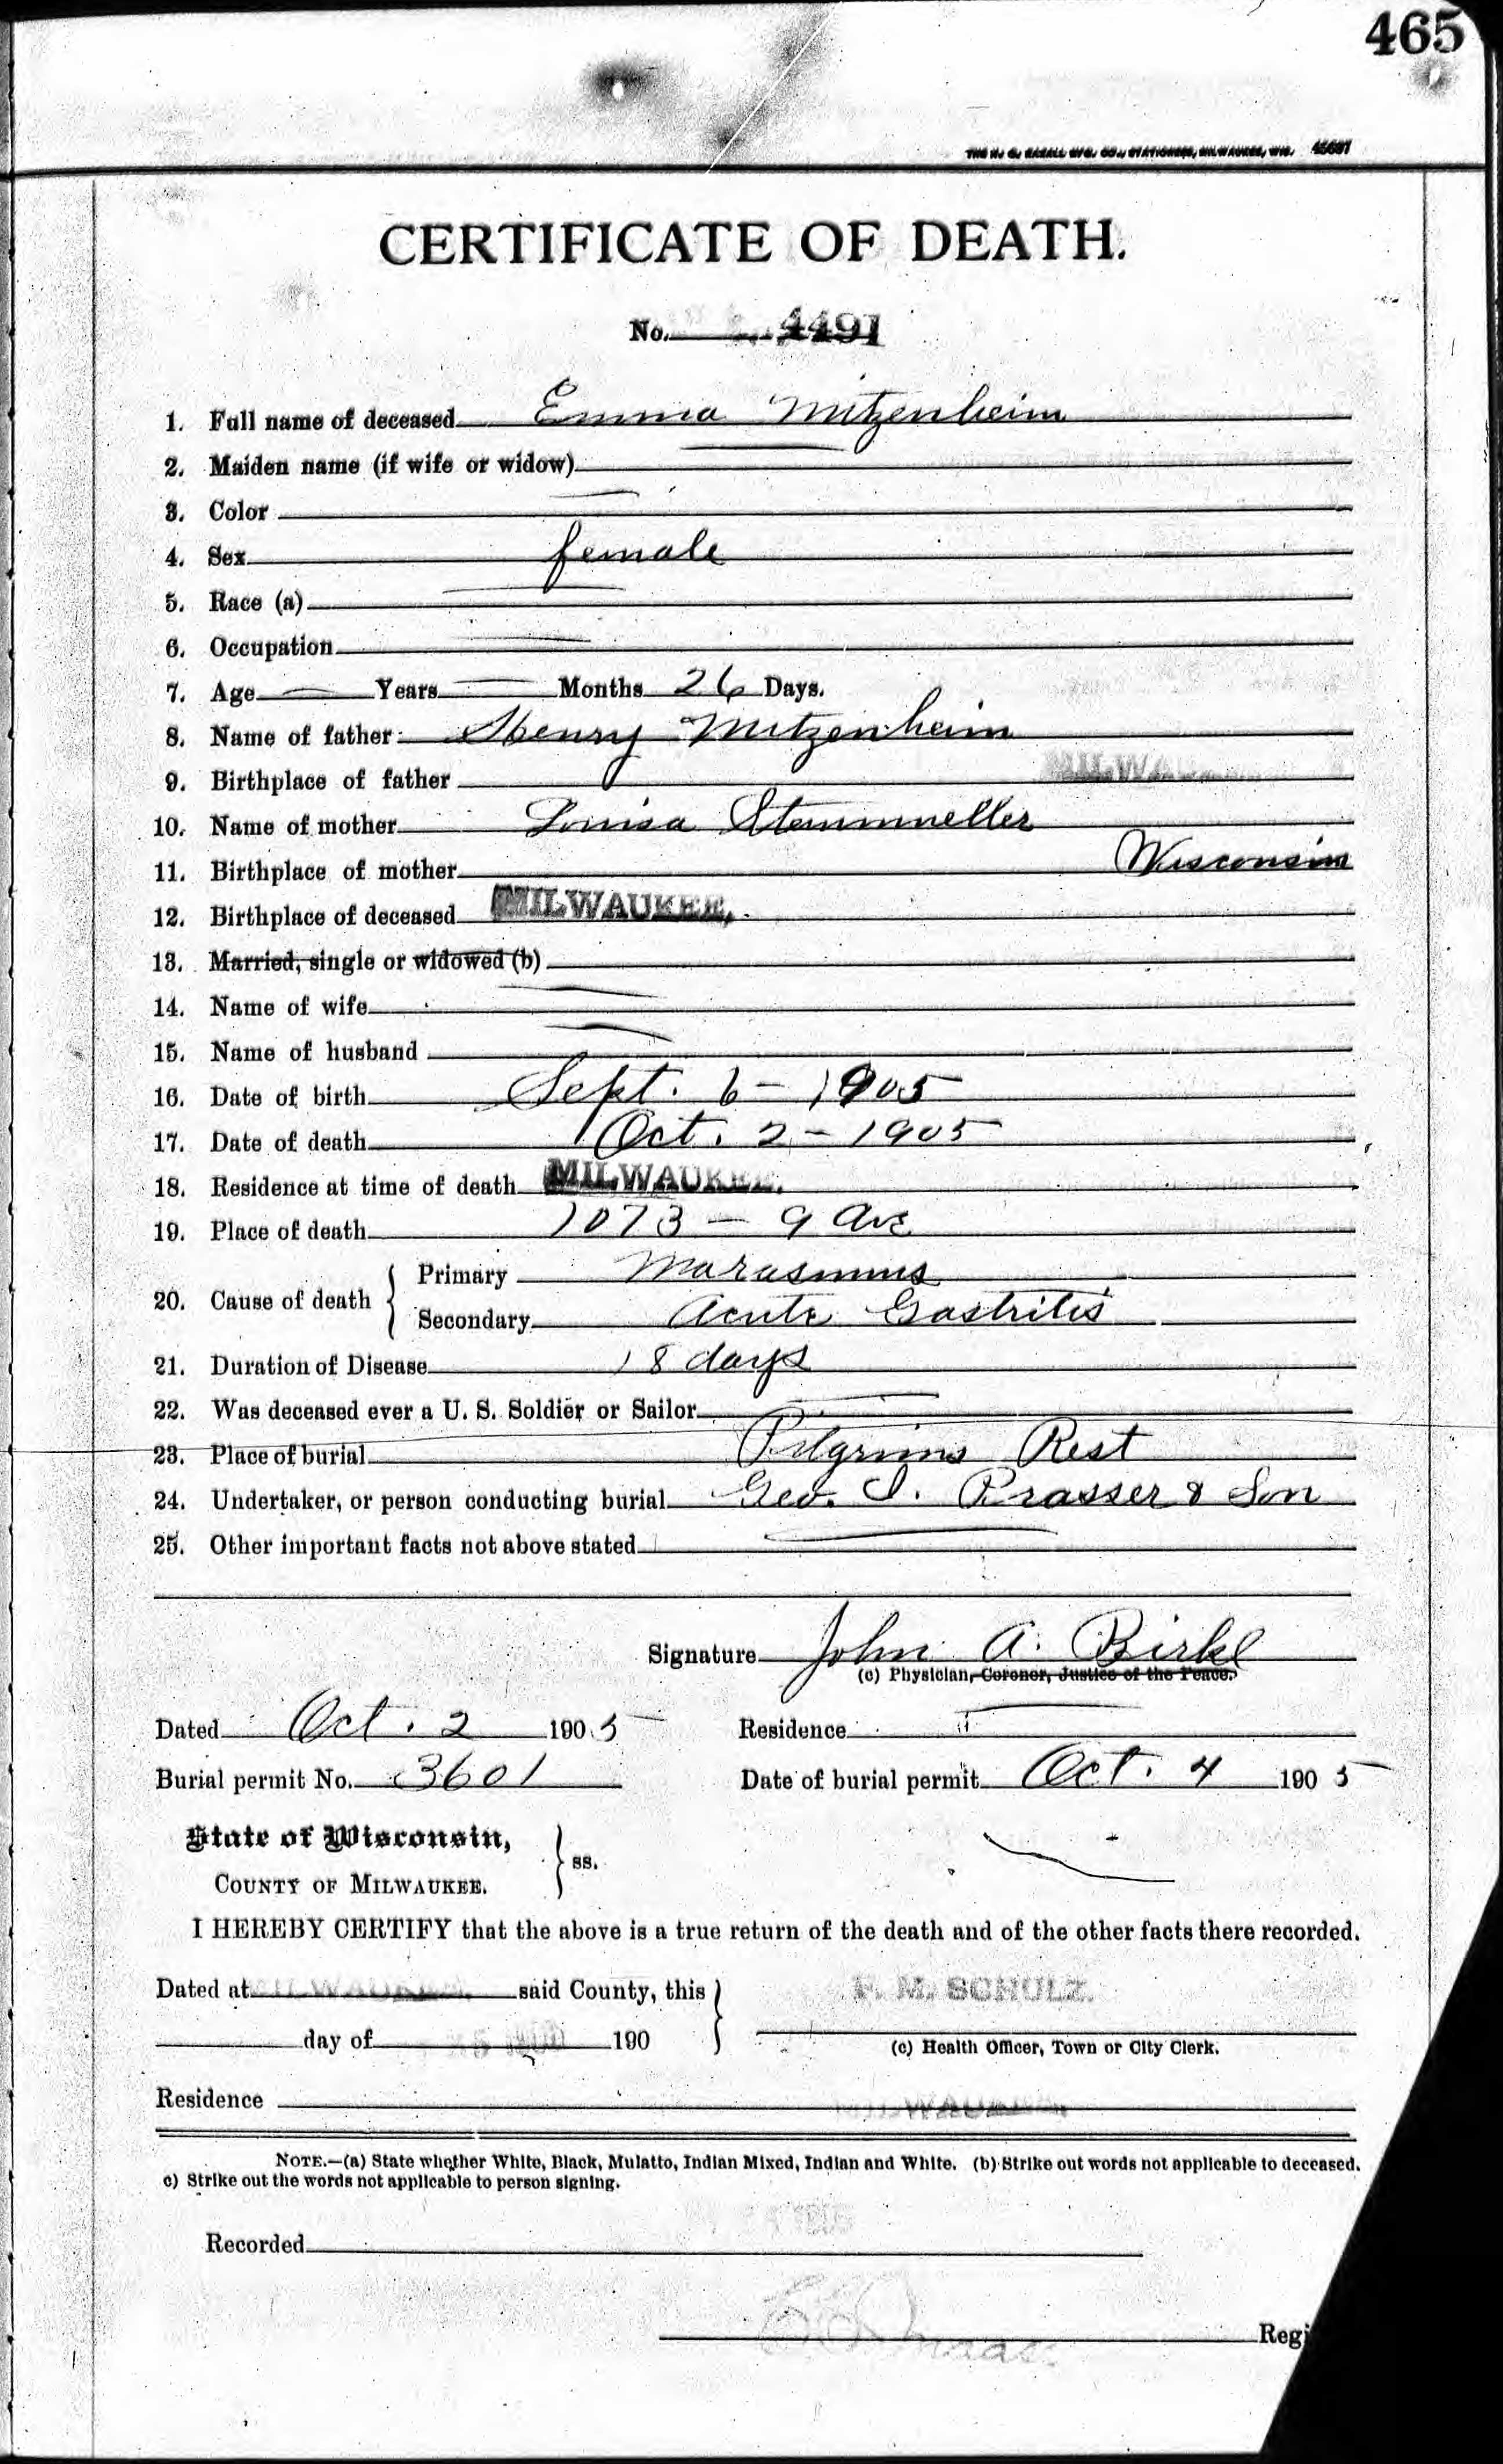 465
THE H. G. RAZALL MFG. CO., STATIONERS, MILWAUKEE, WIS.
CERTIFICATE OF DEATH.
No. 4491
1. Full name of deceased Emma Mitzenheim
2. Maiden name (if wife or widow)
3. Color
4. Sex female
5. Race (a)
6. Occupation
7. Age — Years — Months 26 Days.
8. Name of father Henry Mitzenheim
9. Birthplace of father MILWA
10. Name of mother Louisa Stemmueller
11. Birthplace of mother Wisconsin
12. Birthplace of deceased MILWAUKEE,
13. Married, single or widowed (b)
14. Name of wife
15. Name of husband
16. Date of birth Sept. 6 - 1905
17. Date of death Oct. 2 - 1905
18. Residence at time of death MILWAUKEE.
19. Place of death 1073 - 9 Ave
20. Cause of death { Primary Marasmus
Secondary Acute Gastritis
21. Duration of Disease 18 days
22. Was deceased ever a U. S. Soldier or Sailor
23. Place of burial Pilgrims Rest
24. Undertaker, or person conducting burial Geo. I. Prasser & Son
25. Other important facts not above stated
Signature John A. Birkl
(c) Physician, Coroner, Justice of the Peace.
Dated Oct. 2 1905 Residence
Burial permit No. 3601 Date of burial permit Oct. 4 1905
State of Wisconsin, } ss.
COUNTY OF MILWAUKEE.
I HEREBY CERTIFY that the above is a true return of the death and of the other facts there recorded.
Dated at MILWAUKEE. said County, this } F. M. SCHULZ.
day of 190
(c) Health Officer, Town or City Clerk.
Residence MILWAUKEE
NOTE.—(a) State whether White, Black, Mulatto, Indian Mixed, Indian and White. (b) Strike out words not applicable to deceased.
c) Strike out the words not applicable to person signing.
Recorded
Regi